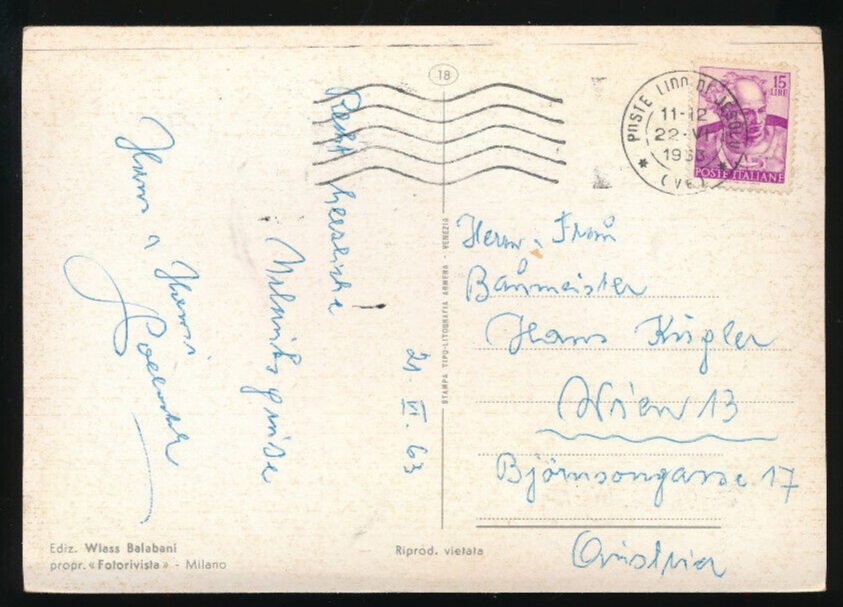 Recht herzliche
Urlaubsgrüsse
Hans u. Hermi
21. VI. 63
18
15
LIRE
POSTE ITALIANE
POSTE LIDO DI JESOLO
11-12
22-VI
1963
(VE)
Herrn u. Frau
Baumeister
Hans Kugler
Wien 13
Björnsongasse 17
Austria
STAMPA TIPO-LITOGRAFIA ARMENA - VENEZIA
Ediz. Wlass Balabani
propr. «Fotorivista» - Milano
Riprod. vietata